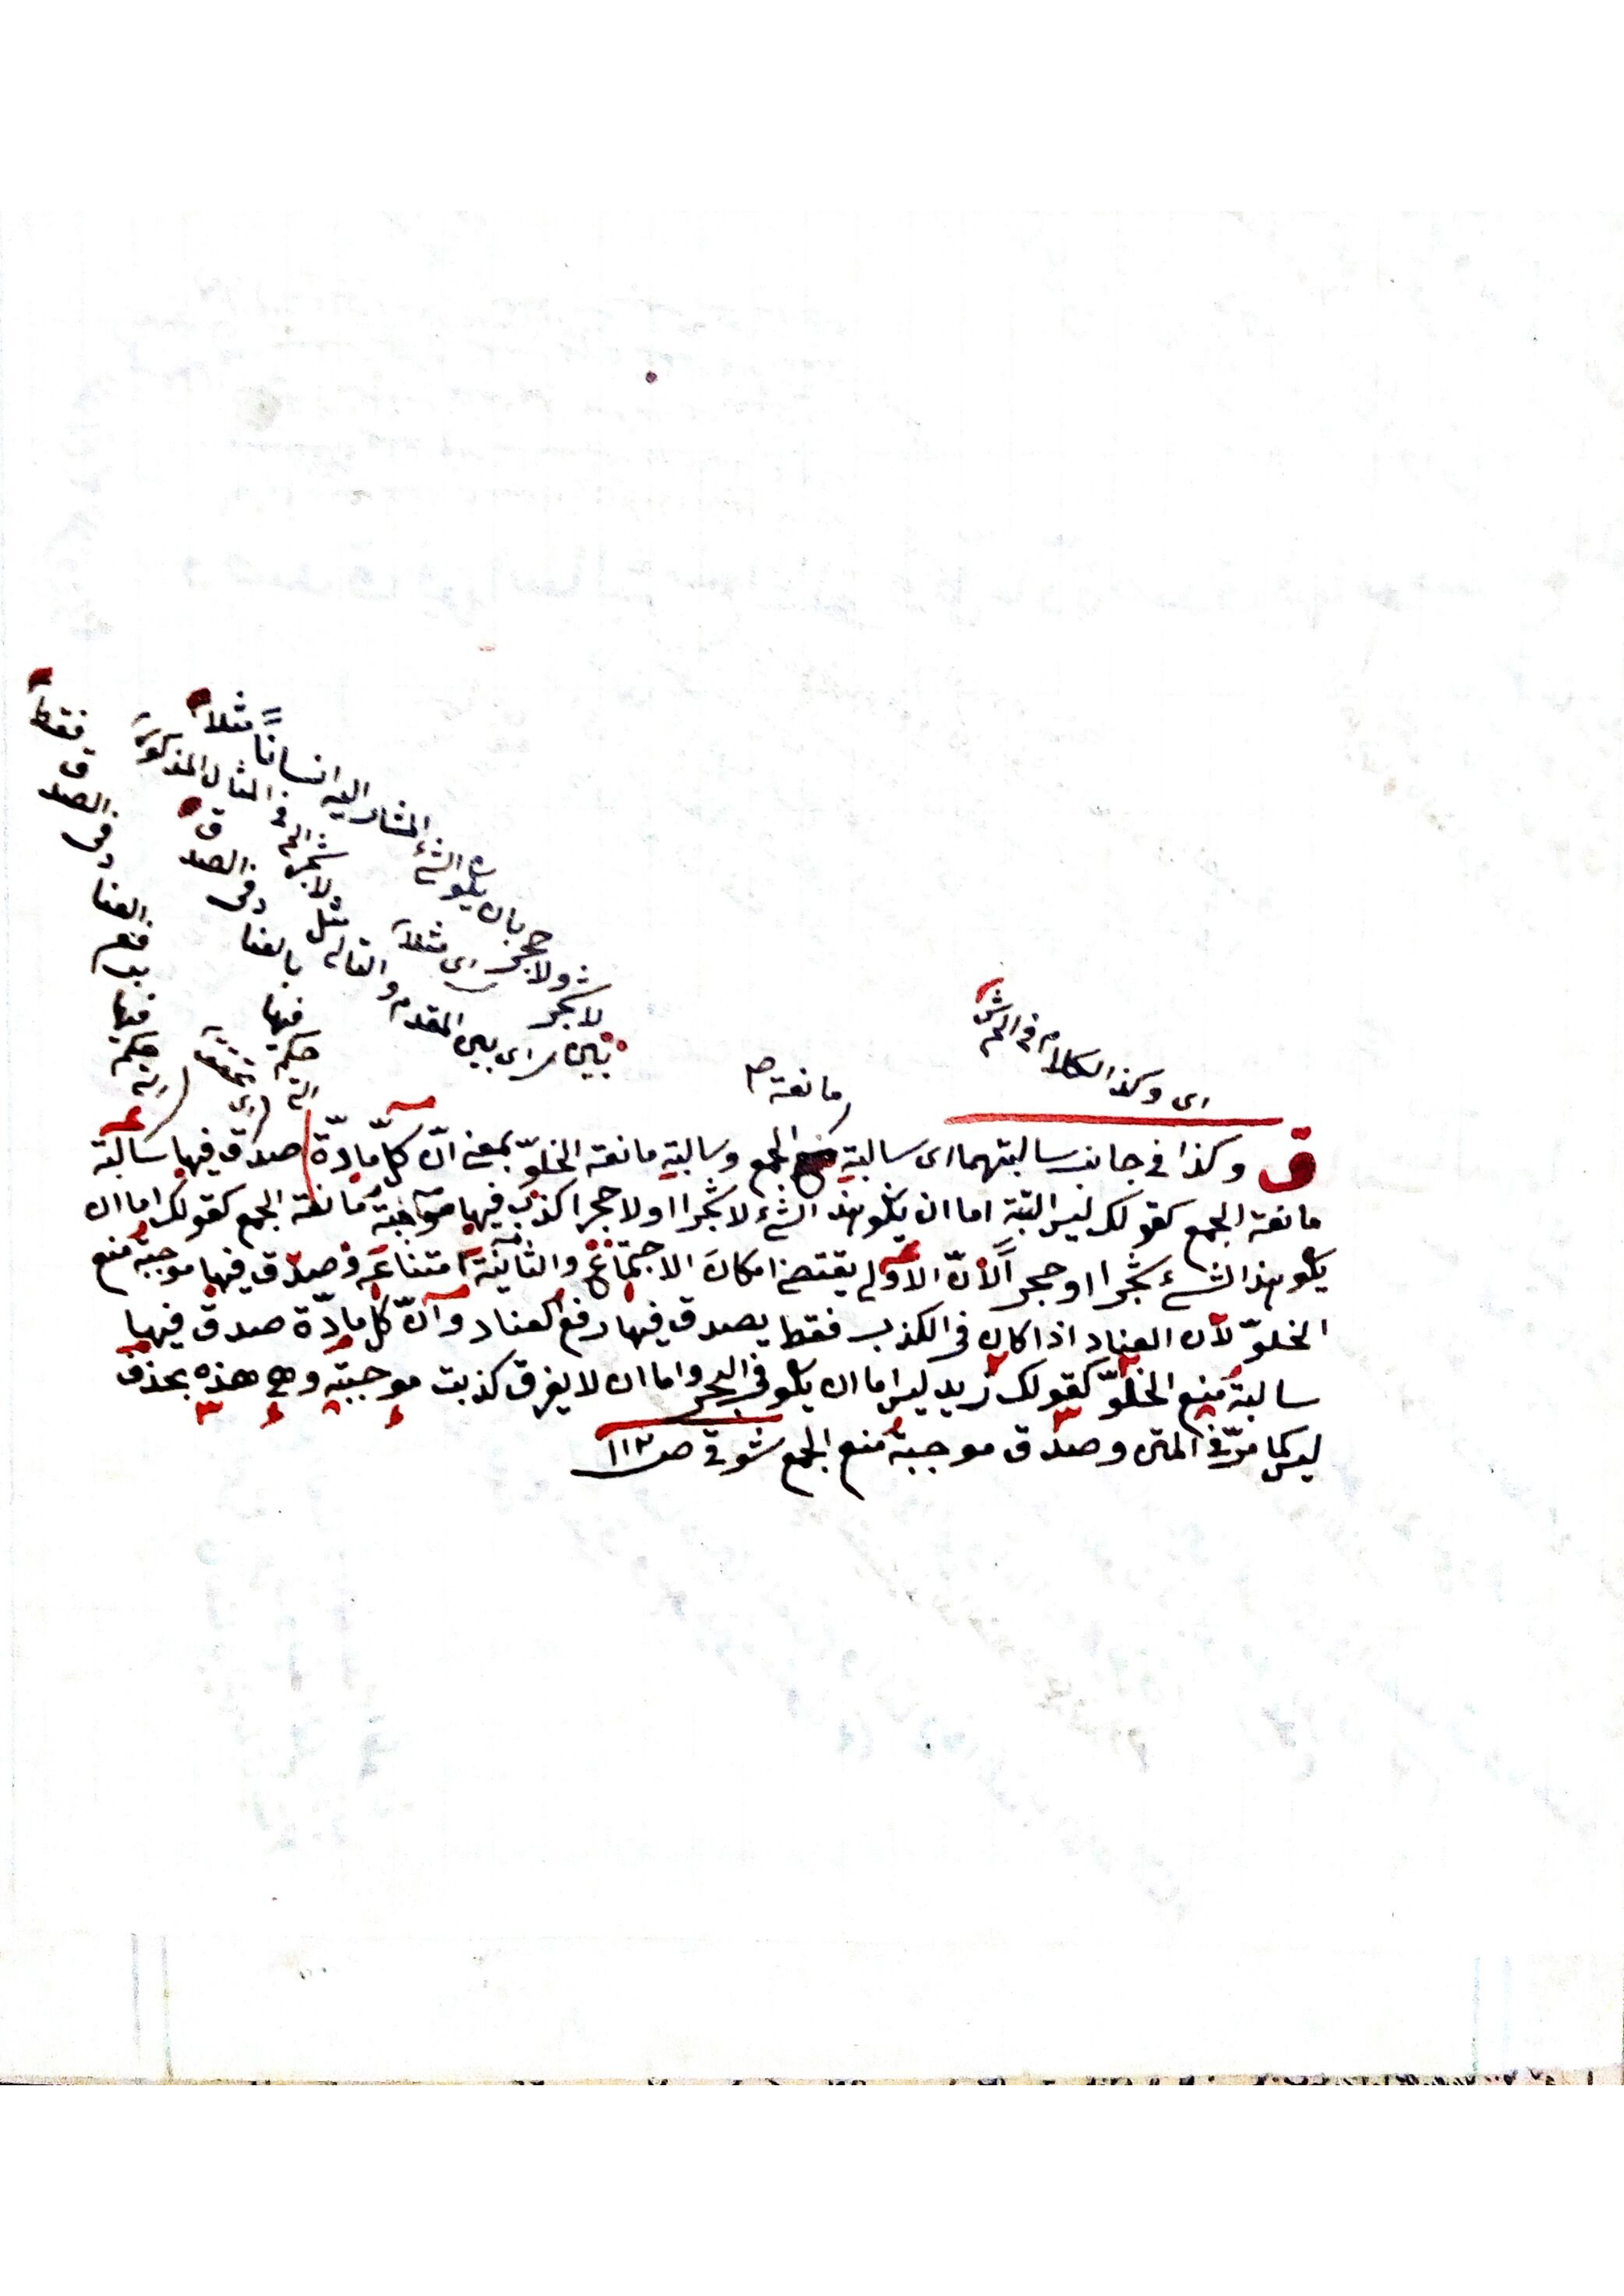 اى وكذا الكلام فى الح ش
مانعة صح
ق وكذا فى جانب سالبتهما اى سالبة الجمع وسالبة مانعة الخلوّ بمعنى انّ كلّ مادّة صدق فيها سالبة
مانعة الجمع كقولك ليس البتة اما ان يكون هذا الشئ لا شجرا او لا حجرا كذب فيها موجبة مانعة الجمع كقولك اما ان
يكون هذا الشئ شجرا او حجرا لأنّ الاولى يقتضى امكان الاجتماع والثانية امتناعه وصدق فيها موجبة منع
الخلوّ لأن العناد اذا كان فى الكذب فقط يصدق فيها رفع العناد وانّ كلّ مادّة صدق فيها
سالبة منع الخلوّ كقولك زيد ليس اما ان يكون فى البحر واما ان لا يغرق كذبت موجبته وهى هذه بحذف
ليس كما مرّ فى المتن وصدق موجبة منع الجمع شوقى صـ ١١٣
لا شجر ولا حجر بان يكون الشئ المشار اليه انسانا مثلا
اى بين المقدم والتالى مثل لا شجر فى المثال المذكور
اى مثلا
التى حكم فيها بالعناد فى الصدق
التى حكم فيها برفع العناد فى الصدق فقط